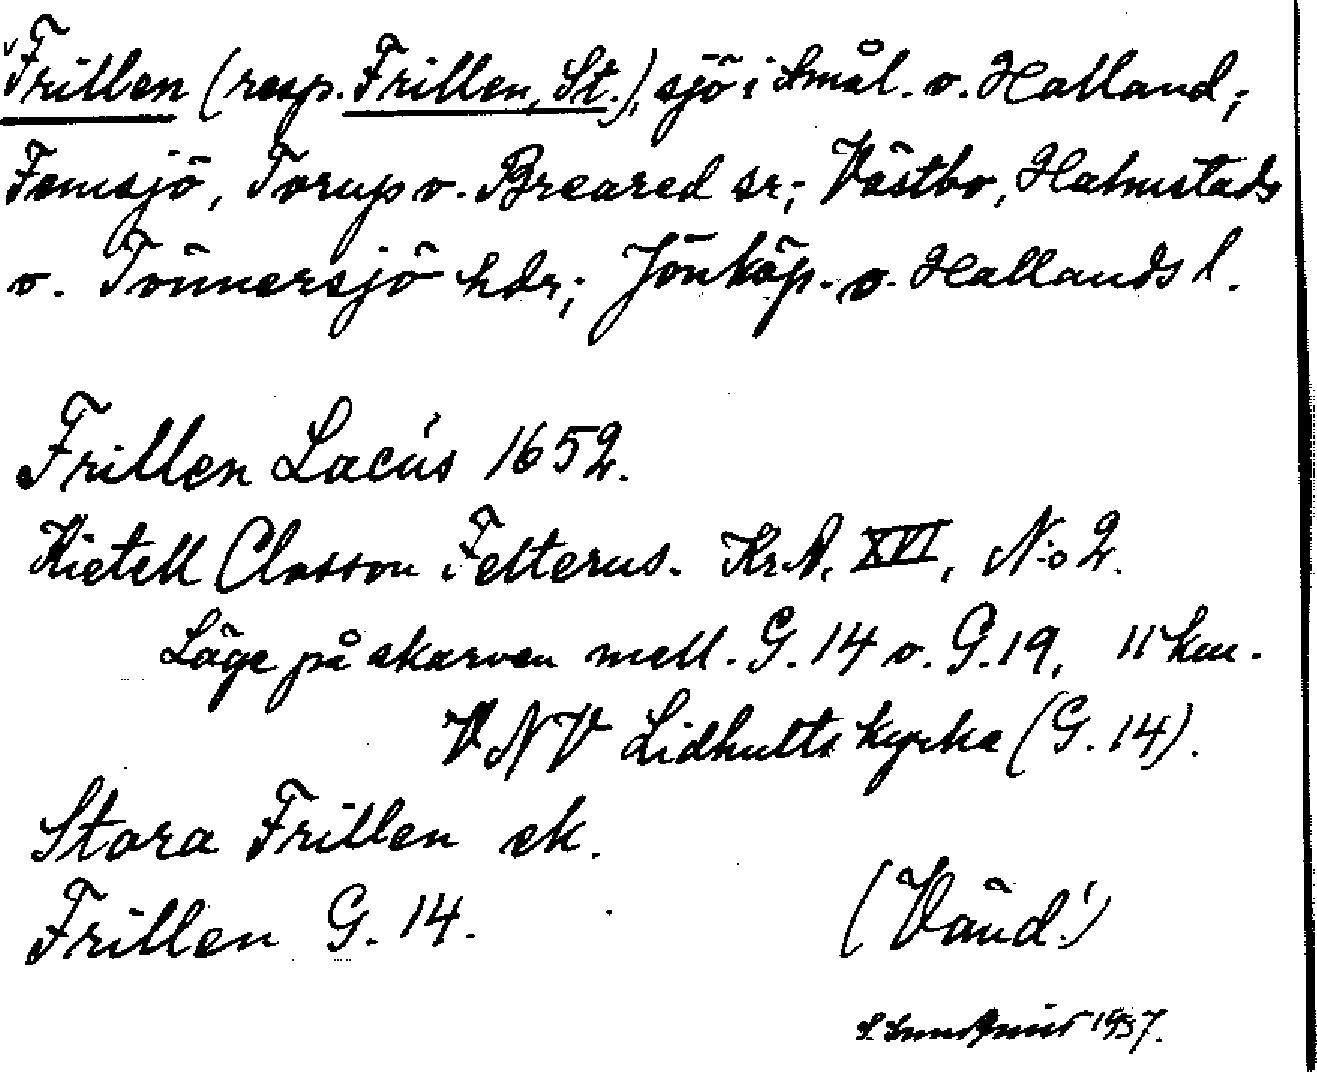 Frillen (resp. Frillen, St.), sjö i Smål. o. Halland;
Femsjö, Torup o. Breared sr; Västbo, Halmstads
o. Tönnersjö hdr; Jönköp. o. Hallands l.
Frillen Lacus 1652.
Kietell Classon Felterus. Kr.A. XVI, N:o 2.
Läge på skarven mell. G. 14 o. G. 19, 11 km.
VNV Lidhults kyrka (G. 14).
Stora Frillen ek.
Frillen G. 14.
(Vänd!)
1937.